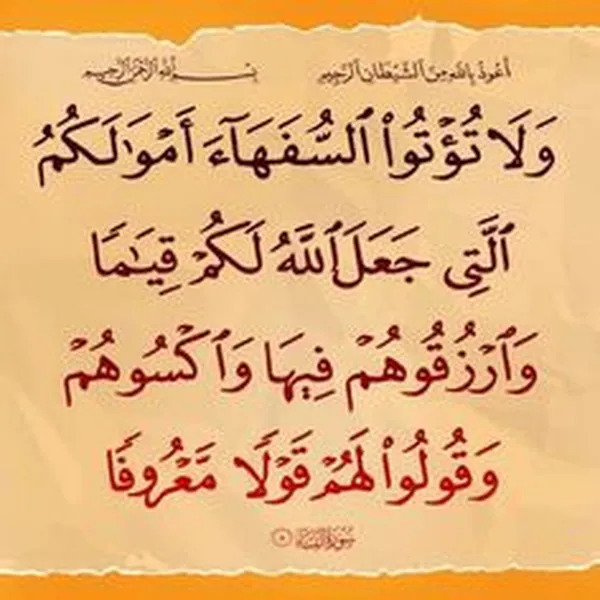 أعوذ بالله من ٱلشَّيْطَانِ ٱلرَّجِيمِ بسم الله الرحمن الرحيم
وَلَا تُؤْتُوا۟ ٱلسُّفَهَآءَ أَمْوَٰلَكُمُ
ٱلَّتِى جَعَلَ ٱللَّهُ لَكُمْ قِيَـٰمًا
وَٱرْزُقُوهُمْ فِيهَا وَٱكْسُوهُمْ
وَقُولُوا۟ لَهُمْ قَوْلًا مَّعْرُوفًا
سورة النساء ٥